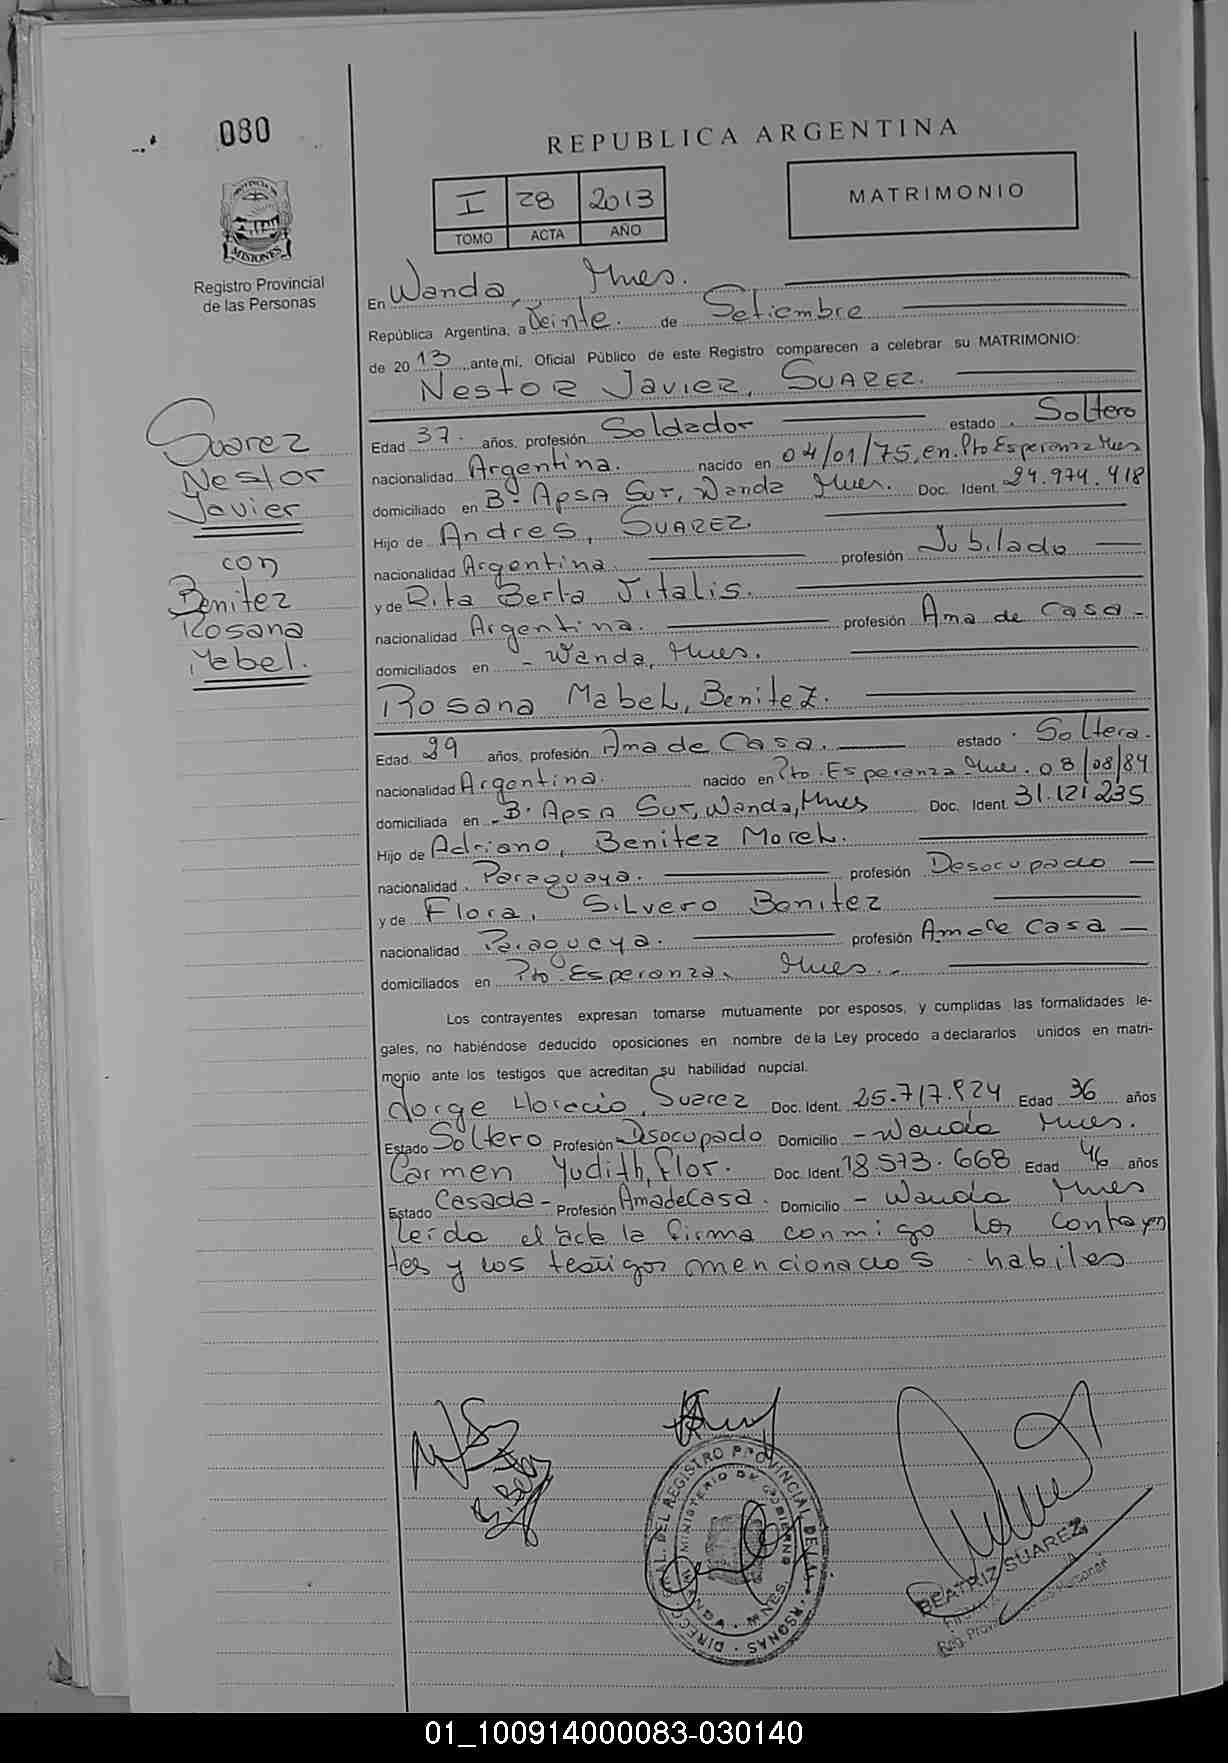 080
REPUBLICA ARGENTINA
I 28 2013
TOMO ACTA AÑO
MATRIMONIO
PROVINCIA DE
MISIONES
Registro Provincial
de las Personas
En Wanda, Mnes.
República Argentina, a Veinte. de Setiembre
de 2013 ante mí, Oficial Público de este Registro comparecen a celebrar su MATRIMONIO:
Nestor Javier, SUAREZ.
Suarez
Nestor
Javier
con
Benitez
Rosana
Mabel.
Edad 37. años, profesión Soldador estado Soltero
nacionalidad Argentina. nacido en 04/01/75, en Pto Esperanza Mnes
domiciliado en B° Apsa Sur, Wanda Mnes. Doc. Ident. 24.974.418
Hijo de Andres, SUAREZ.
nacionalidad Argentina profesión Jubilado
y de Rita Berta Vitalis.
nacionalidad Argentina. profesión Ama de Casa -
domiciliados en - Wanda, Mnes.
Rosana Mabel, Benitez.
Edad 29 años, profesión Ama de Casa. estado Soltera.
nacionalidad Argentina. nacido en Pto. Esperanza Mnes. 03/08/84
domiciliada en - B° Apsa Sur, Wanda, Mnes Doc. Ident. 31.121.235
Hijo de Adriano, Benitez Morel.
nacionalidad Paraguaya. profesión Desocupado
y de Flora, Silvero Benitez
nacionalidad Paragueya. profesión Ama de Casa
domiciliados en Pto Esperanza, Mnes.
Los contrayentes expresan tomarse mutuamente por esposos, y cumplidas las formalidades le-
gales, no habiéndose deducido oposiciones en nombre de la Ley procedo a declararlos unidos en matri-
monio ante los testigos que acreditan su habilidad nupcial.
Jorge Horacio, Suarez Doc. Ident. 25.717.924 Edad 36 años
Estado Soltero Profesión Desocupado Domicilio - Wanda Mnes.
Carmen Yudith, Flor. Doc. Ident. 18.573.668 Edad 46 años
Estado Casada - Profesión Ama de Casa. Domicilio - Wanda Mnes
leída el acta la firma conmigo los contrayen
tes y los testigos mencionados habiles
DIRECC. GRAL. DEL REGISTRO PROVINCIAL DE LAS PERSONAS
MINISTERIO DE GOBIERNO
WANDA MNES
BEATRIZ SUAREZ
Reg. Prov. Personas
01_100914000083-030140